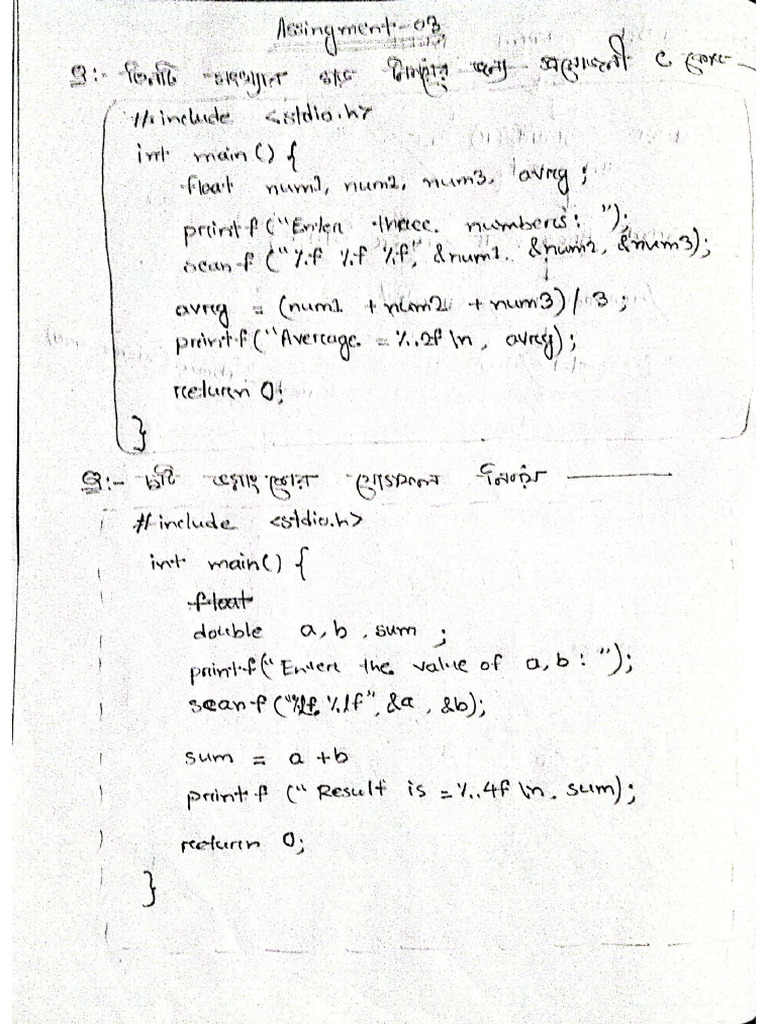 Assingment-03
প্র:- তিনটি সংখ্যার গড় নির্ণয়ের জন্য প্রয়োজনী C কোড-
#include <stdio.h>
int main() {
float num1, num2, num3, avrg ;
printf("Enter three numbers: ");
scanf ("%f %f %f", &num1, &num2, &num3);
avrg = (num1 + num2 + num3) / 3 ;
printf("Average = %.2f \n , avrg);
return 0;
}
প্র:- ২টি ভগ্নাংশের যোগফল নির্ণয়
#include <stdio.h>
int main() {
float
double a, b , sum ;
printf("Enter the value of a, b : ");
scanf ("%lf, %lf", &a , &b);
sum = a + b
printf (" Result is = %.4f \n , sum);
return 0;
}